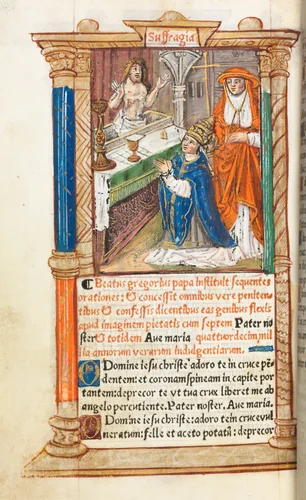 Suffragia
Beatus gregorius papa instituit sequentes
orationes: & concessit omnibus vere peniten
tibus & confessis dicentibus eas genibus flexis
apud imaginem pietatis cum septem Pater no
ster & totidem Aue maria quattuordecim mil
lia annorum verarum indulgentiarum.
O Domine iesu christe adoro te in cruce pē
dentem: et coronam spineam in capite por
tantem: deprecor te vt tua crux liberet me ab
angelo percutiente. Pater noster. Aue maria.
O Domine iesu christe: adoro te in cruce vul
neratum: felle et aceto potatū: deprecor